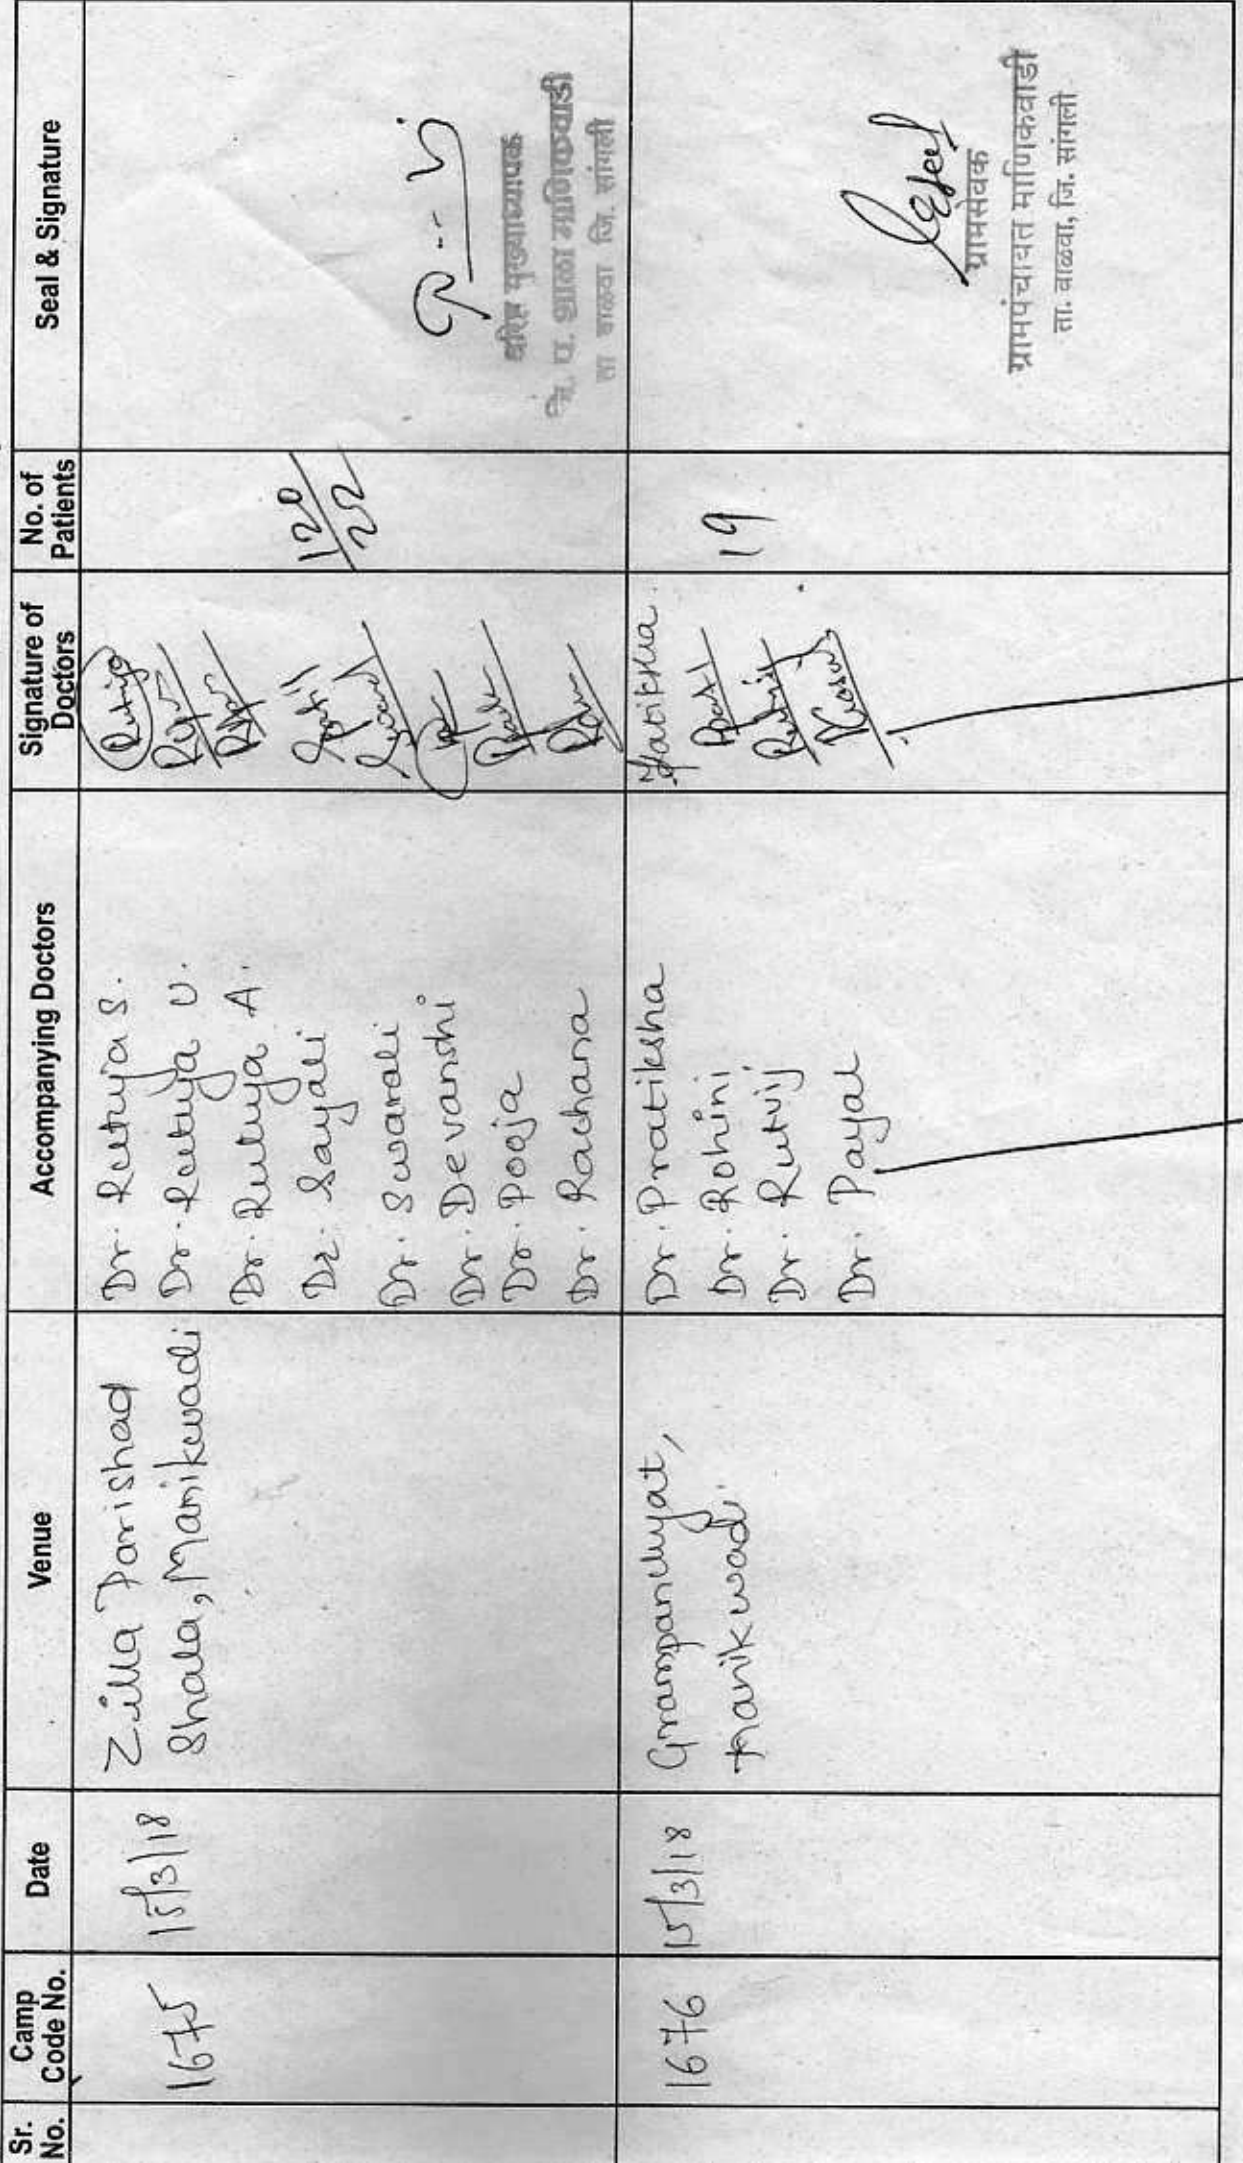 Sr. No.
Camp Code No.
Date
Venue
Accompanying Doctors
Signature of Doctors
No. of Patients
Seal & Signature
1675
15/3/18
Zilla Parishad
Shala, Manikwadi
Dr. Rutuja S.
Dr. Rutuja U.
Dr. Rutuja A.
Dr. Sayali
Dr. Swarali
Dr. Devanshi
Dr. Pooja
Dr. Rachana
120
22
वरिष्ठ मुख्याध्यापक
जि. प. शाळा माणिकवाडी
ता वाळवा जि. सांगली
1676
15/3/18
Grampanchyat,
Manikwadi.
Dr. Pratiksha
Dr. Rohini
Dr. Rutvij
Dr. Payal
19
ग्रामसेवक
ग्रामपंचायत माणिकवाडी
ता. वाळवा, जि. सांगली